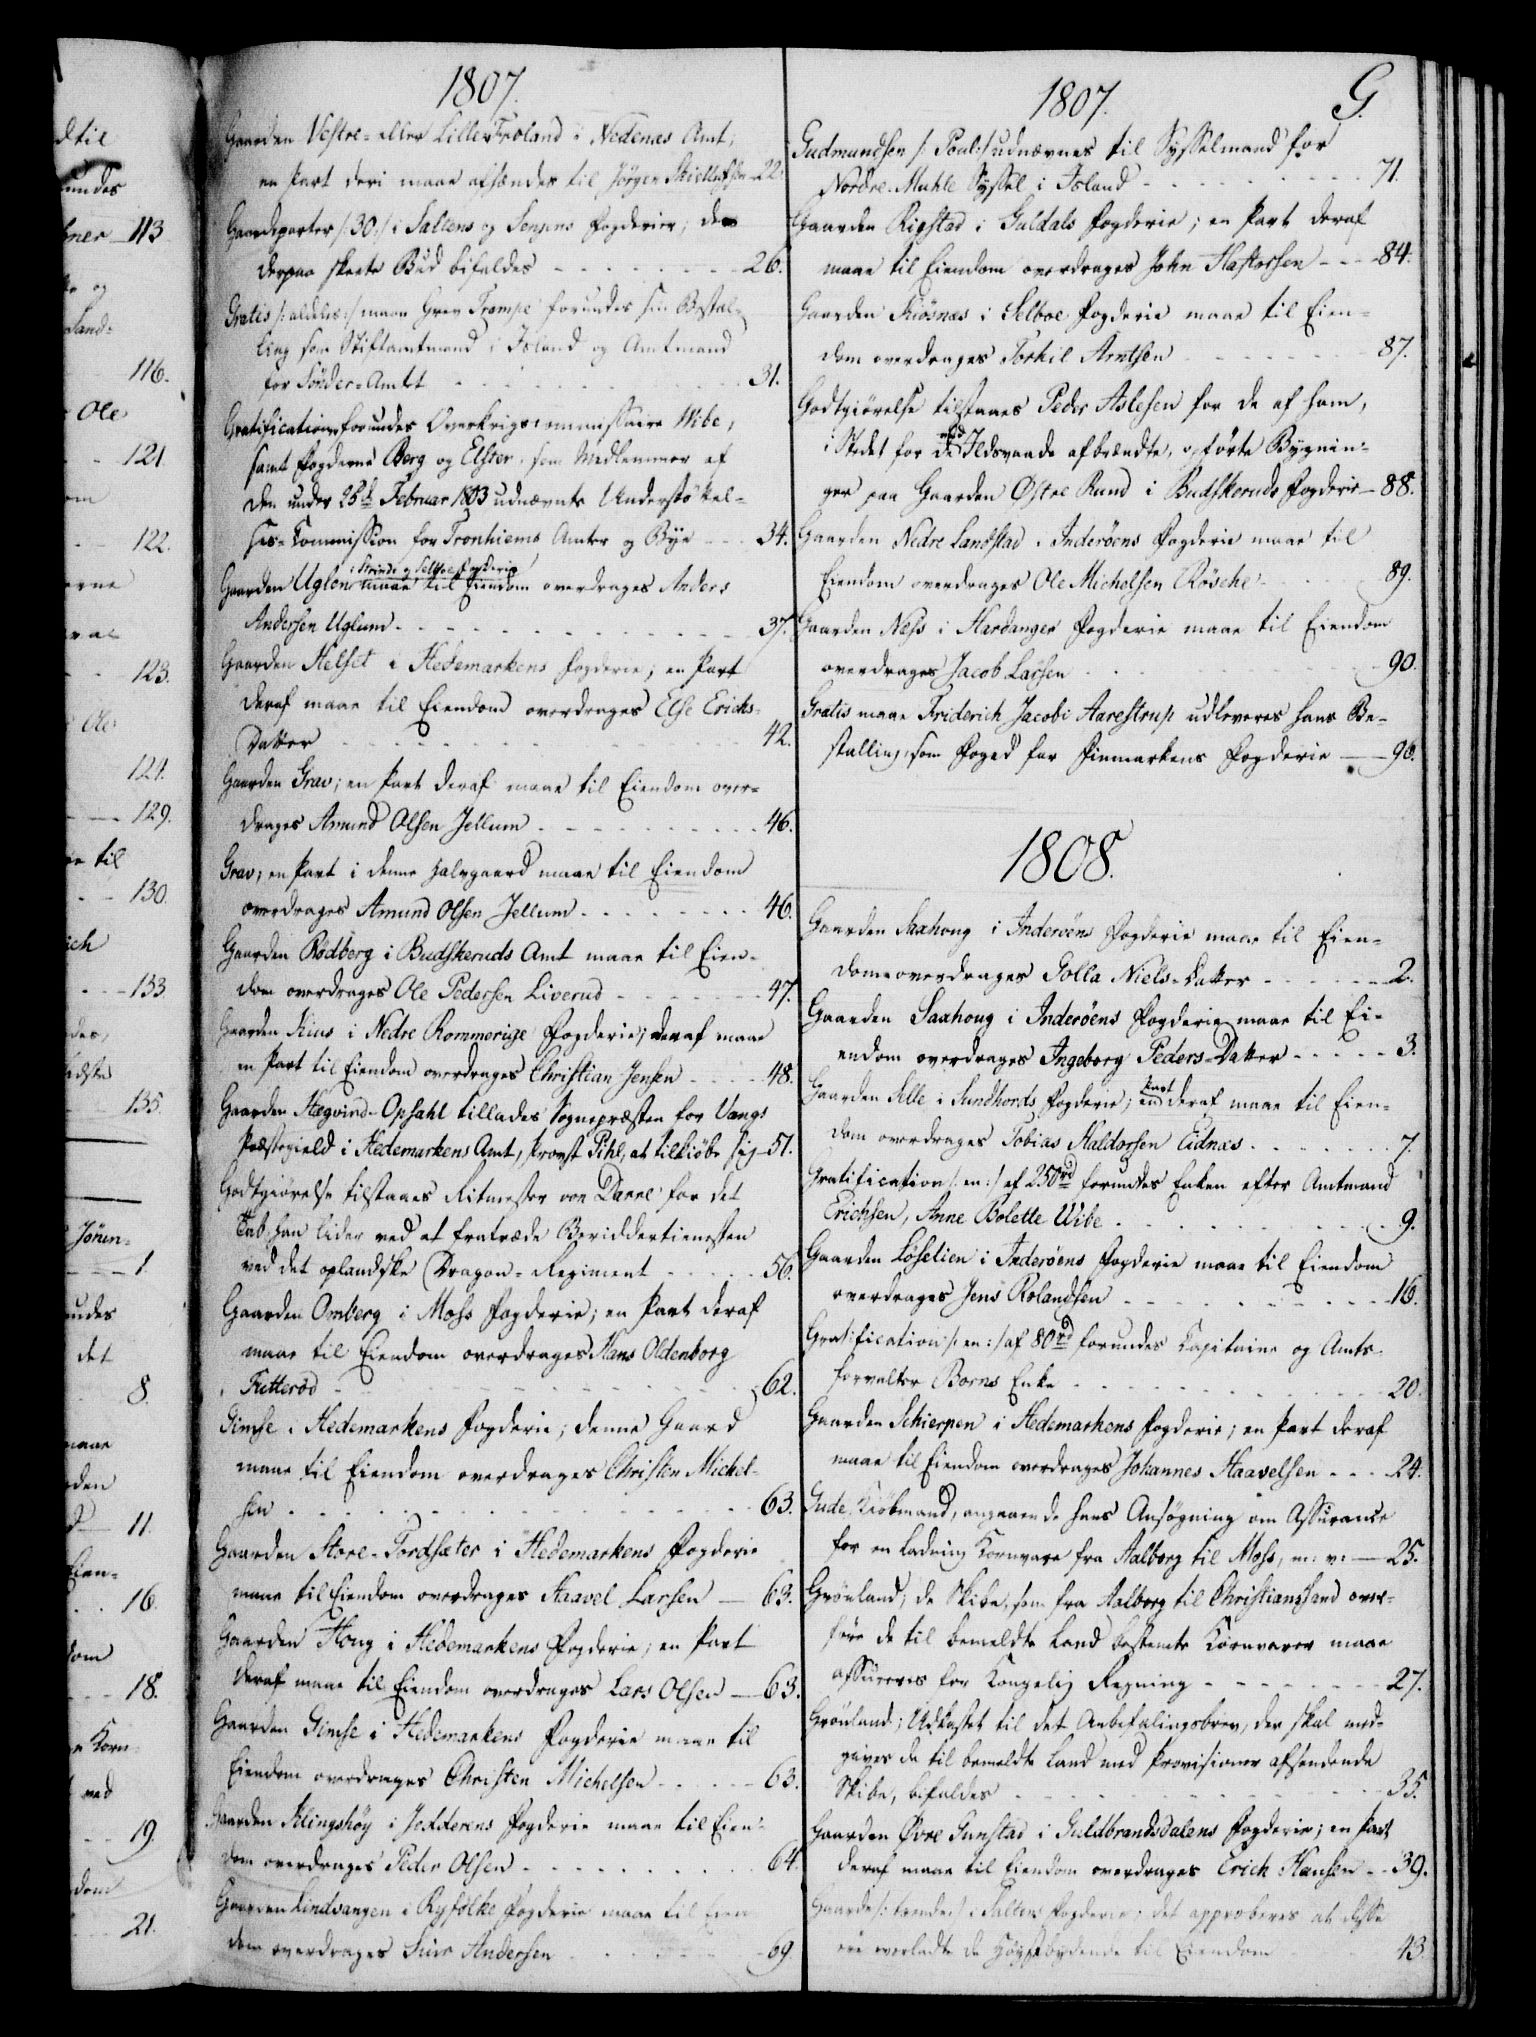 dtil
undes
ner 113.
og
Land-
116.
Ole
121.
om
122.
erne
123.
124.
129.
til
130.
ich
133.
des,
135.
Jörn-
1.
undes
det
8.
maae
den
11.
Eien-
16.
dom
18.
Korn-
ved
19.
dom
21.
1807.
Gaarden Vestre- eller Lille Froland i Nedenæs Amt;
en Part deri maae afhændes til Jörgen Skiellefsen 22.
Gaardeparter /:30:/ i Saltens og Senjens Fogderier; de
derpaa skeete Bud bifaldes - - - 26.
Gratis /:aldeles:/ maae Grev Trampe forundes sin Bestal-
ling som Stiftamtmand i Island og Amtmand
for Sönder-Amtet - - - 31.
Gratificationer forundes Overkrigscommissaire Wibe,
samt Fogderne Berg og Elster som Medlemmer af
den under 25de Februar 1803 udnævnte Undersökel-
ses-Kommission for Tronhiems Amter og Bye - - - 34.
i Strinde og Selboe Fogderie
Gaarden Uglen maae til Eiendom overdrages Anders
Andersen Uglum - - - 37.
Gaarden Helset i Hedemarkens Fogderie; en Part
deraf maae til Eiendom overdrages Else Erichs-
Datter - - - 42.
Gaarden Grav; en Part deraf maae til Eiendom over-
drages Amund Olsen Jellum - - - 46.
Grav; en Part i denne Halvgaard maae til Eiendom
overdrages Amund Olsen Jellum - - - 46.
Gaarden Rödberg i Budskeruds Amt maae til Eien-
dom overdrages Ole Pedersen Liverud - - - 47.
Gaarden Kius i Nedre Rommerige Fogderie; deraf maae
en Part til Eiendom overdrages Christian Jensen - - - 48.
Gaarden Hegvind-Opsahl tillades Sognepræsten for Vangs
Præstegield i Hedemarkens Amt, Provst Pihl, at tilkiöbe sig 51.
Godtgiörelse tilstaaes Ritmester von Danne for det
Tab, han lider ved at fratræde Beriddertienesten
ved det oplandske Dragon-Regiment - - - 56.
Gaarden Omberg i Moss Fogderie; en Part deraf
maae til Eiendom overdrages Hans Oldenborg
Fetteröd - - - 62.
Gimse i Hedemarkens Fogderie; denne Gaard
maae til Eiendom overdrages Christen Michel-
sen - - - 63.
Gaarden Store-Tordsæter i Hedemarkens Fogderie
maae til Eiendom overdrages Haavel Larsen — 63.
Gaarden Houg i Hedemarkens Fogderie; en Part
deraf maae til Eiendom overdrages Lars Olsen — 63.
Gaarden Gimse i Hedemarkens Fogderie maae til
Eiendom overdrages Christen Michelsen - - - 63.
Gaarden Klingshöy i Jedderens Fogderie maae til Eien-
dom overdrages Peder Olsen - - - 64.
Gaarden Lindvangen i Ryfölke Fogderie maae til Eien-
dom overdrages Siur Andersen - - - 69.
1807. G.
Gudmundsen /:Poul:/ udnævnes til Sysselmand for
Nordre-Muhle Syssel i Island - - - 71.
Gaarden Rigstad i Guldals Fogderie; en Part deraf
maae til Eiendom overdrages John Hastorsen - - - 84.
Gaarden Kiösnæs i Selboe Fogderie maae til Eien-
dom overdrages Torkil Arntsen - - - 87.
Godtgiörelse tilstaaes Peder Aslesen for de af ham,
i Stedet for de ved Ildsvaade afbrændte, opförte Bygnin-
ger paa Gaarden Østre Rund i Budskeruds Fogderie — 88.
Gaarden Nedre Landstad i Inderöens Fogderie maae til
Eiendom overdrages Ole Michelsen Rösche - - - 89.
Gaarden Næss i Hardanger Fogderie maae til Eiendom
overdrages Jacob Larsen - - - 90.
Gratis maae Friderich Jacobi Aarestrup udleveres hans Be-
stalling som Foged for Finmarkens Fogderie — 96.
1808.
Gaarden Saxhoug i Inderöens Fogderie maae til Eien-
dom overdrages Golla Niels-Datter - - - 2.
Gaarden Saxhoug i Inderöens Fogderie maae til Ei-
endom overdrages Ingeborg Peders-Datter - - - 3.
Gaarden Selle i Sundhords Fogderie; en Part deraf maae til Eien-
dom overdrages Tobias Haldorsen Eidnæs - - - 7.
Gratification /:en:/ af 250rd forundes Enken efter Amtmand
Erichsen, Anne Bolette Wibe - - - 9.
Gaarden Löselien i Inderöens Fogderie maae til Eiendom
overdrages Jens Rolandsen - - - 16.
Gratification /:en:/ af 80rd forundes Kapitaine og Amts-
forvalter Borns Enke - - - 20.
Gaarden Schierpen i Hedemarkens Fogderie; en Part deraf
maae til Eiendom overdrages Johannes Haavelsen - - - 24.
Gude, Kiöbmand, angaaende hans Ansögning om Assurance
for en Ladning Kornvare fra Aalborg til Moss, m: v: — 25.
Grönland; de Skibe, som fra Aalborg til Christianssand over-
före de til bemeldte Land bestemte Kornvarer maae
assureres for Kongelig Regning - - - 27.
Grönland; Udkastet til det Anbefalingsbrev, der skal med-
gives de til bemeldte Land med Provisioner afsendende
Skibe, bifaldes - - - 35.
Gaarden Øvre Sunstad i Guldbrandsdalens Fogderie; en Part
deraf maae til Eiendom overdrages Erich Hansen - - 39.
Gaarde /:trende:/ i Saltens Fogderie; det approberes at disse
ere overladte de Höystbydende til Eiendom - - - 43.